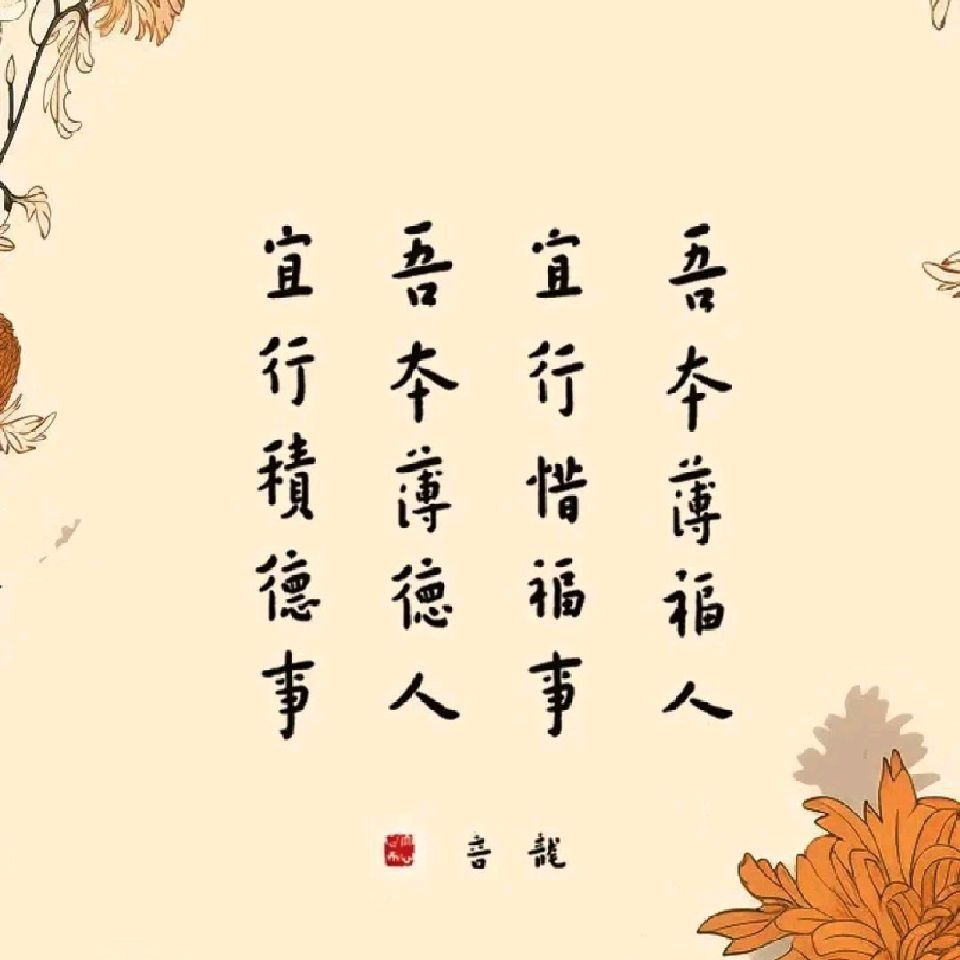 吾本薄福人
宜行惜福事
吾本薄德人
宜行積德事
龍音